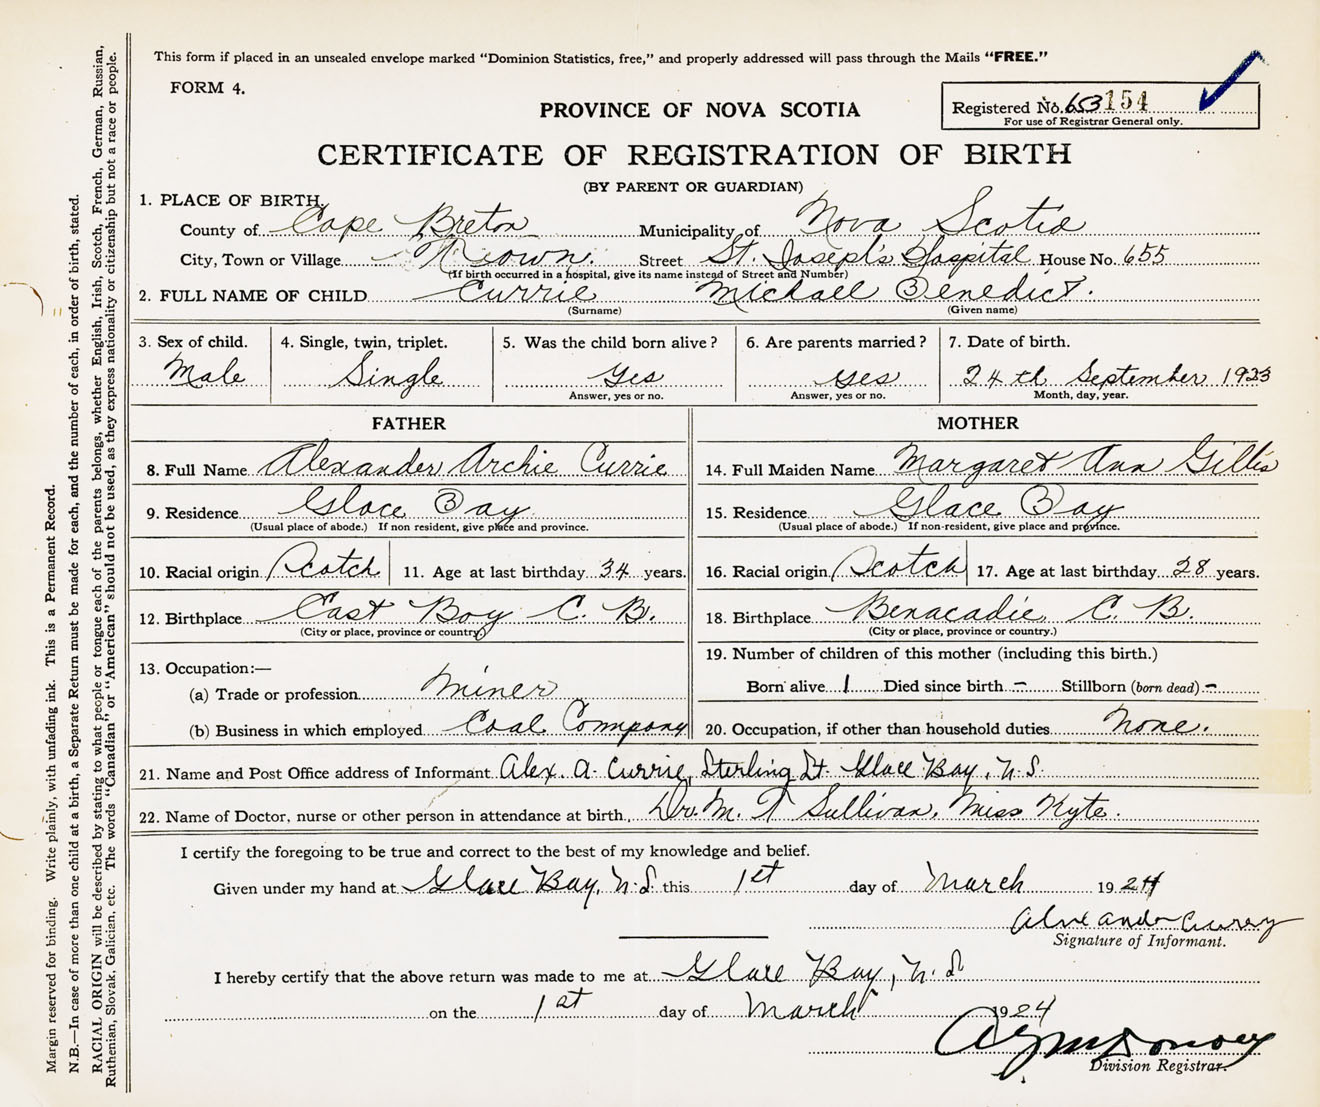 This form if placed in an unsealed envelope marked "Dominion Statistics, free," and properly addressed will pass through the Mails "FREE."
FORM 4.
PROVINCE OF NOVA SCOTIA
Registered No. 653154
For use of Registrar General only.
CERTIFICATE OF REGISTRATION OF BIRTH
(BY PARENT OR GUARDIAN)
1. PLACE OF BIRTH,
County of Cape Breton Municipality of Nova Scotia
City, Town or Village Town. Street St. Joseph's Hospital House No. 655
(If birth occurred in a hospital, give its name instead of Street and Number)
2. FULL NAME OF CHILD Currie Michael Benedict.
(Surname) (Given name)
3. Sex of child. 4. Single, twin, triplet. 5. Was the child born alive? 6. Are parents married? 7. Date of birth.
Male Single Yes yes 24th September 1923
Answer, yes or no. Answer, yes or no. Month, day, year.
FATHER MOTHER
8. Full Name Alexander Archie Currie 14. Full Maiden Name Margaret Ann Gillis
9. Residence Glace Bay 15. Residence Glace Bay
(Usual place of abode.) If non resident, give place and province. (Usual place of abode.) If non-resident, give place and province.
10. Racial origin Scotch 11. Age at last birthday 34 years. 16. Racial origin Scotch 17. Age at last birthday 28 years.
12. Birthplace East Bay C. B. 18. Birthplace Benacadie C. B.
(City or place, province or country) (City or place, province or country.)
13. Occupation:— 19. Number of children of this mother (including this birth.)
(a) Trade or profession miner Born alive 1 Died since birth – Stillborn (born dead) –
(b) Business in which employed Coal Company 20. Occupation, if other than household duties None.
21. Name and Post Office address of Informant Alex. A. Currie, Sterling St. Glace Bay, N.S.
22. Name of Doctor, nurse or other person in attendance at birth, Dr. M. T Sullivan, Miss Kyte.
I certify the foregoing to be true and correct to the best of my knowledge and belief.
Given under my hand at Glace Bay, N.S. this 1st day of March 1924
Signature of Informant.
I hereby certify that the above return was made to me at Glace Bay, N.S
on the 1st day of March 1924
Division Registrar.
Margin reserved for binding. Write plainly, with unfading ink. This is a Permanent Record.
N.B.—In case of more than one child at a birth, a Separate Return must be made for each, and the number of each, in order of birth, stated.
RACIAL ORIGIN will be described by stating to what people or tongue each of the parents belongs, whether English, Irish, Scotch, French, German, Russian,
Ruthenian, Slovak, Galician, etc. The words "Canadian" or "American" should not be used, as they express nationality or citizenship but not a race or people.